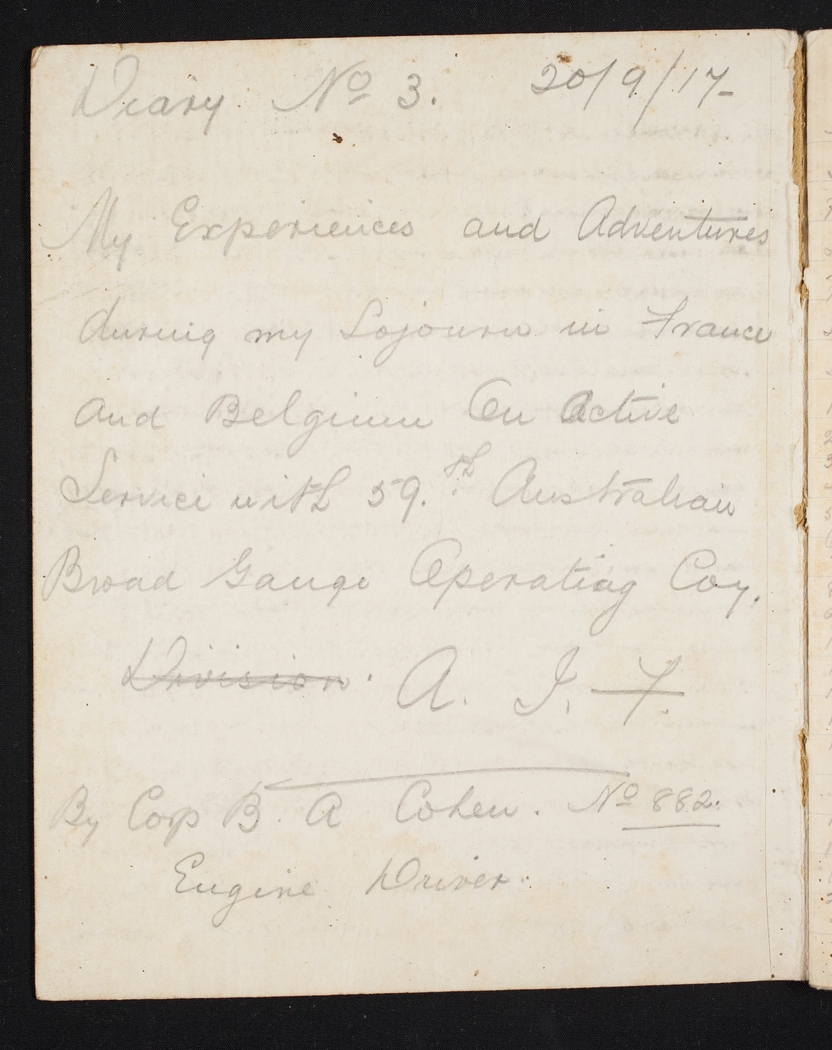 Diary No 3. 20/9/17-
My Experiences and Adventures
during my Sojourn in France
and Belgium On Active
Service with 59.th Australian
Broad Gauge Operating Coy.
Division. A. I. F.
By Corp B. A Cohen. No 882.
Engine Driver.